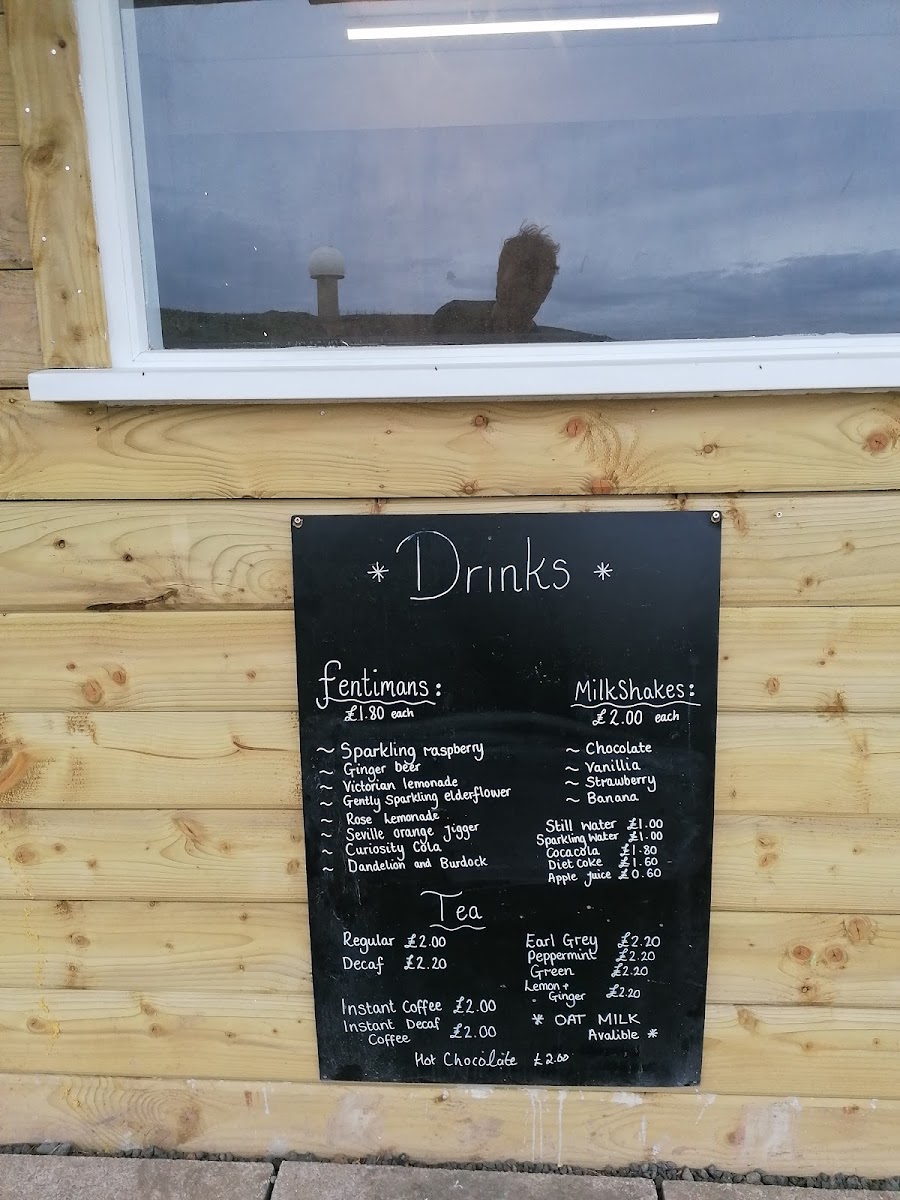 * Drinks *
fentimans:
£1.80 each
~ Sparkling raspberry
~ Ginger beer
~ Victorian lemonade
~ Gently Sparkling elderflower
~ Rose Lemonade
~ Seville orange jigger
~ Curiosity Cola
~ Dandelion and Burdock
MilkShakes:
£2.00 each
~ Chocolate
~ Vanillia
~ Strawberry
~ Banana
Still Water £1.00
Sparkling Water £1.00
Cocacola £1.80
Diet Coke £1.60
Apple juice £0.60
Tea
Regular £2.00
Decaf £2.20
Earl Grey £2.20
Peppermint £2.20
Green £2.20
Lemon +
Ginger £2.20
Instant Coffee £2.00
Instant Decaf
Coffee £2.00
* OAT MILK
Avalible *
Hot Chocolate £2.00